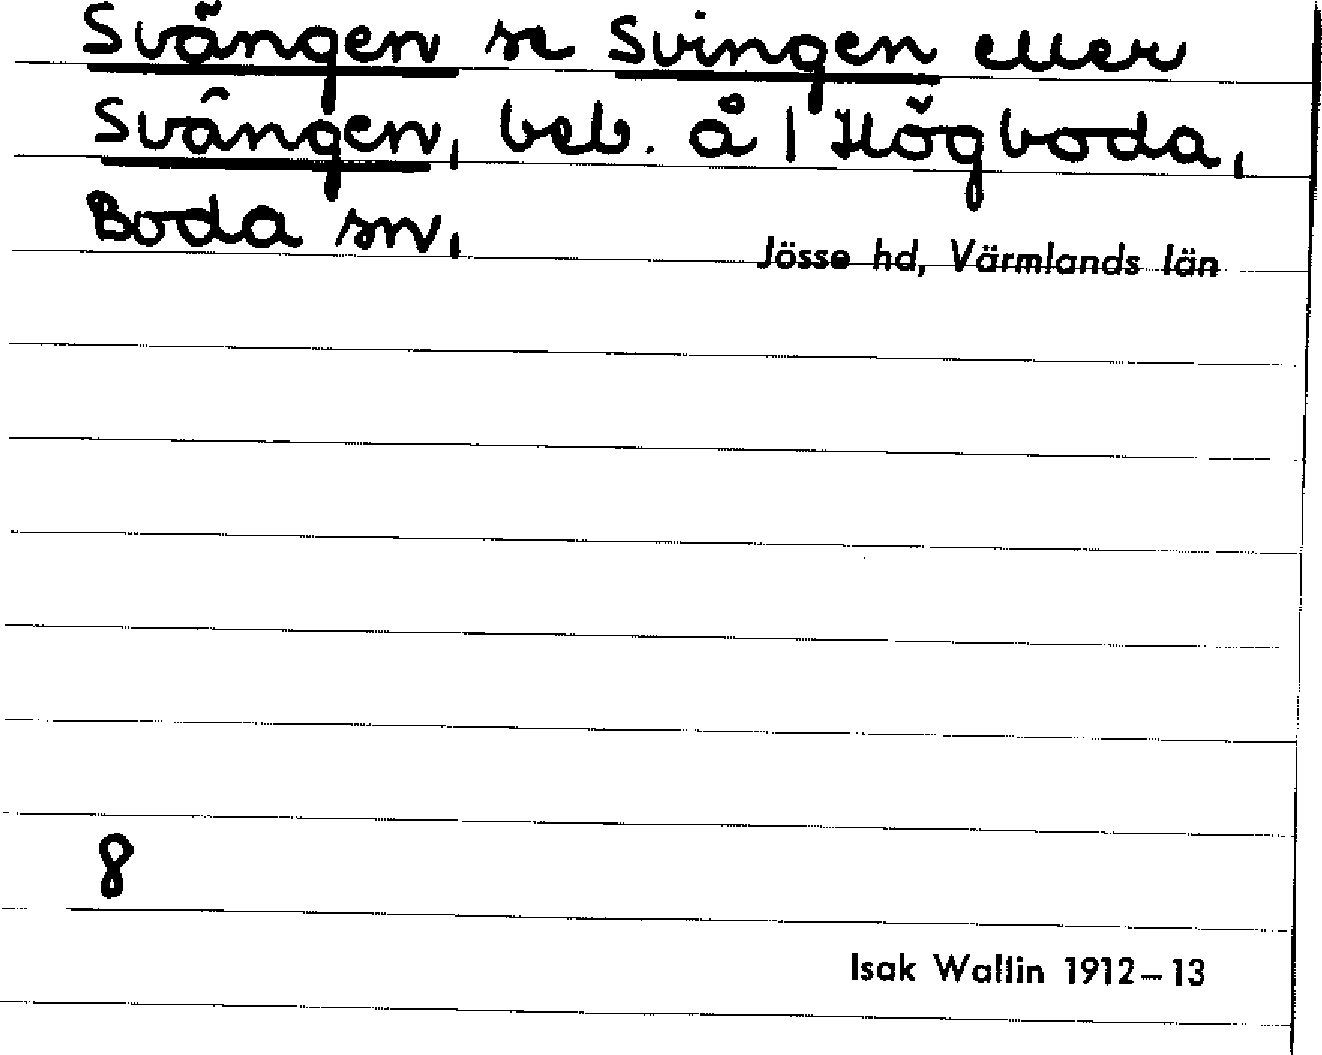 Svängen se Svingen eller
Svängen, beb. å 1 Högboda,
Boda sn,
Jösse hd, Värmlands län
8
Isak Wallin 1912–13